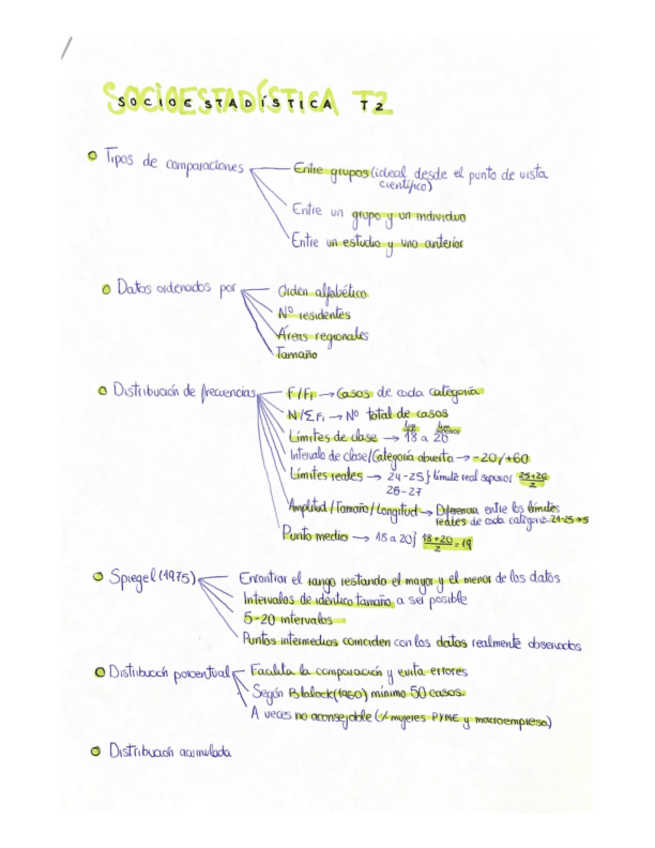 SOCIOESTADÍSTICA T2
Tipos de comparaciones
Entre grupos (ideal desde el punto de vista
científico)
Entre un grupo y un individuo
Entre un estudio y uno anterior
Datos ordenados por
Orden alfabético
Nº residentes
Áreas regionales
Tamaño
Distribución de frecuencias
F/Fi → Casos de cada categoría
N/ΣFi → Nº total de casos
Límites de clase → 18 a 20
Intervalo de clase/Categoría abierta → -20/+60
Límites reales → 24-25} límite real superior
26-27
Amplitud/Tamaño/Longitud → Diferencia entre los límites
reales de cada categoría
Punto medio → 18 a 20} 18+20/2 = 19
Spiegel (1975)
Encontrar el rango restando el mayor y el menor de los datos
Intervalos de idéntico tamaño a ser posible
5-20 intervalos
Puntos intermedios coinciden con los datos realmente observados
Distribución porcentual
Facilita la comparación y evita errores
Según Blalock (1960) mínimo 50 casos.
A veces no aconsejable (% mujeres PYME y macroempresa)
Distribución acumulada